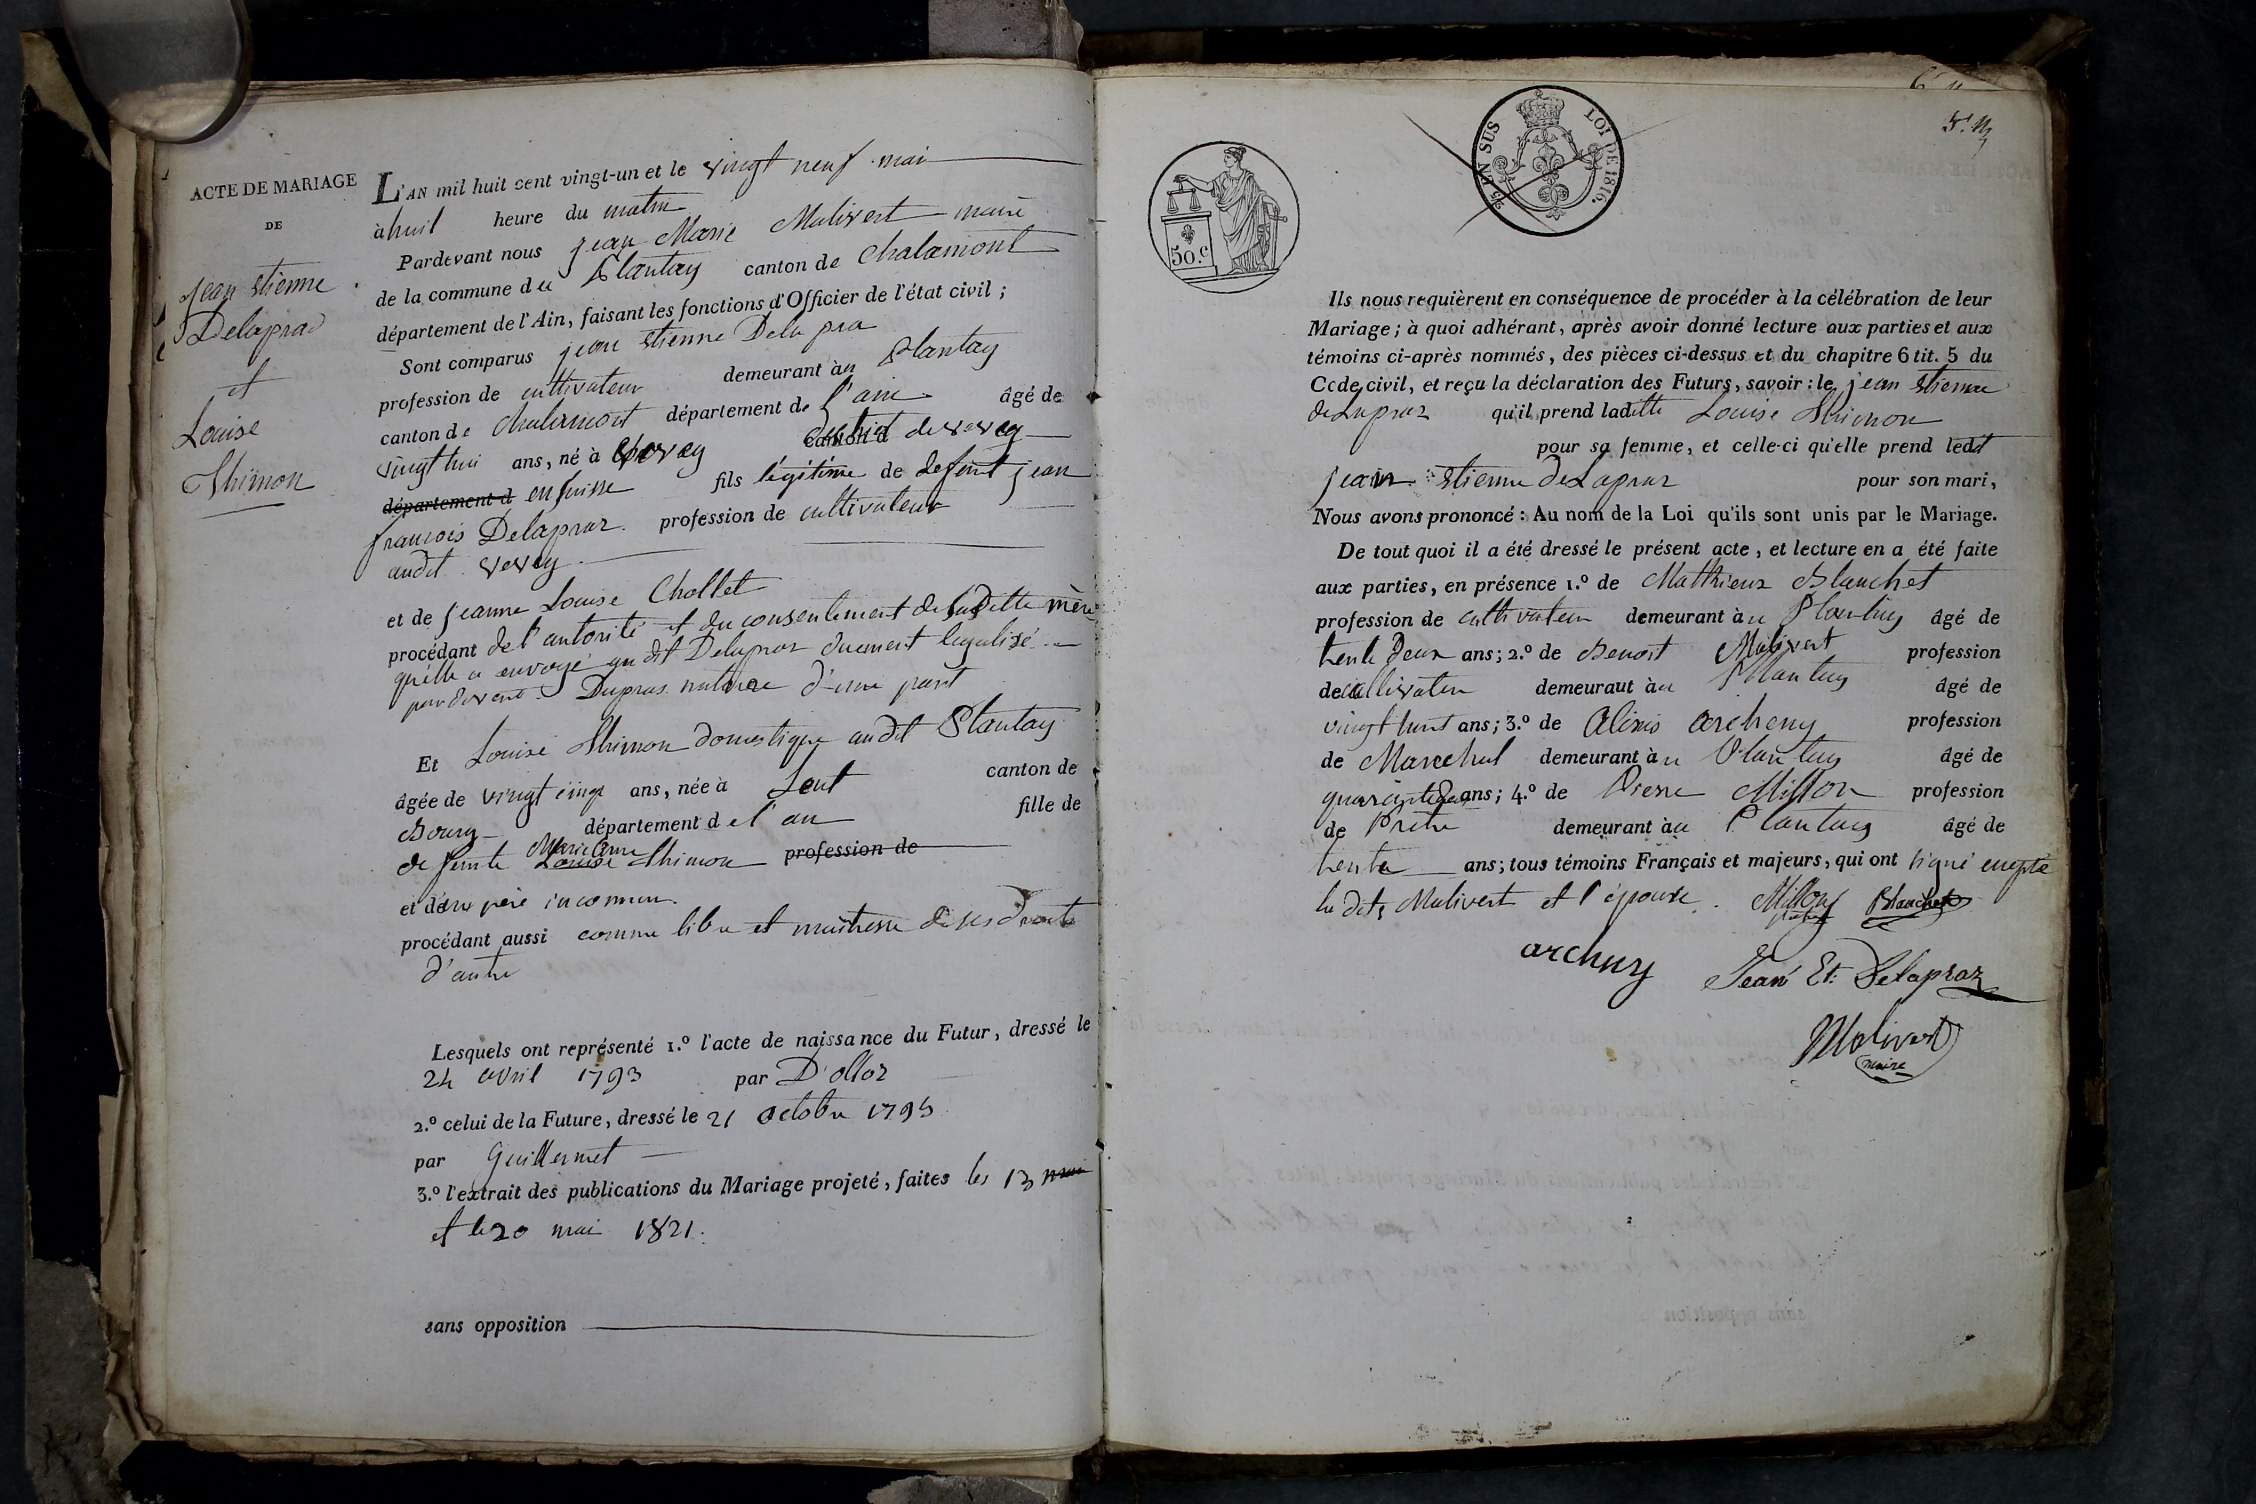 ACTE DE MARIAGE
DE
Jean Etienne
Delapraz
et
Louise
Thimon
L'AN mil huit cent vingt-un et le vingt neuf mai
à huit heure du matin
Pardevant nous jean Marie Malivert maire
de la commune du Plantay canton de Chalamont
département de l'Ain, faisant les fonctions d'Officier de l'état civil ;
Sont comparus jean Etienne Dela pra
profession de cultivateur demeurant àu Plantay
canton de Chalamont département de l'ain âgé de
vingt huit ans, né à Vevey canton d district de vevey
département d en suisse fils légitime de defunt jean
francois Delapraz profession de cultivateur
audit vevey
et de jeanne Louise Chollet
procédant de l'autorité et du consentement de ladite mère
qu'elle a envoyé au dit Delapraz duement legalisé
par devant Dupras notaire d'une part
Et Louise Thimon domestique audit Plantay
âgée de vingt cinq ans, née à Lent canton de
Bourg département de l'ain fille de
defunte Louise Marie Anne Thimon profession de
et d'un père inconnu
procédant aussi comme libre et maitresse de ses droits
d'autre
Lesquels ont représenté 1.º l'acte de naissance du Futur, dressé le
24 avril 1793 par D'olloz
2.º celui de la Future, dressé le 21 octobre 1795
par Guillermet
3.º l'extrait des publications du Mariage projeté, faites les 13 mai
et le 20 mai 1821.
sans opposition
50.c
25 EN SUS LOI DE 1816.
Ils nous requièrent en conséquence de procéder à la célébration de leur
Mariage ; à quoi adhérant, après avoir donné lecture aux parties et aux
témoins ci-après nommés, des pièces ci-dessus et du chapitre 6 tit. 5 du
Code civil, et reçu la déclaration des Futurs, savoir : le jean Etienne
deLapraz qu'il prend ladite Louise Thimon
pour sa femme, et celle-ci qu'elle prend ledit
jean Etienne deLapraz pour son mari,
Nous avons prononcé : Au nom de la Loi qu'ils sont unis par le Mariage.
De tout quoi il a été dressé le présent acte, et lecture en a été faite
aux parties, en présence 1.º de Mathieux Blanchet
profession de cultivateur demeurant àu Plantay âgé de
trente deux ans ; 2.º de Benoit Malivert profession
de cultivateur demeuraut àu Plantay âgé de
vingt huit ans ; 3.º de Alexis archeny profession
de Marechal demeurant àu Plantay âgé de
quarante ans ; 4.º de Pierre Millon profession
de Prêtre demeurant àu Plantay âgé de
trente ans ; tous témoins Français et majeurs, qui ont signé excepté
le dit Malivert et l'épouse. Millon Blanchet
prêtre
archeny
Jean Et. Delapraz
Malivert
maire